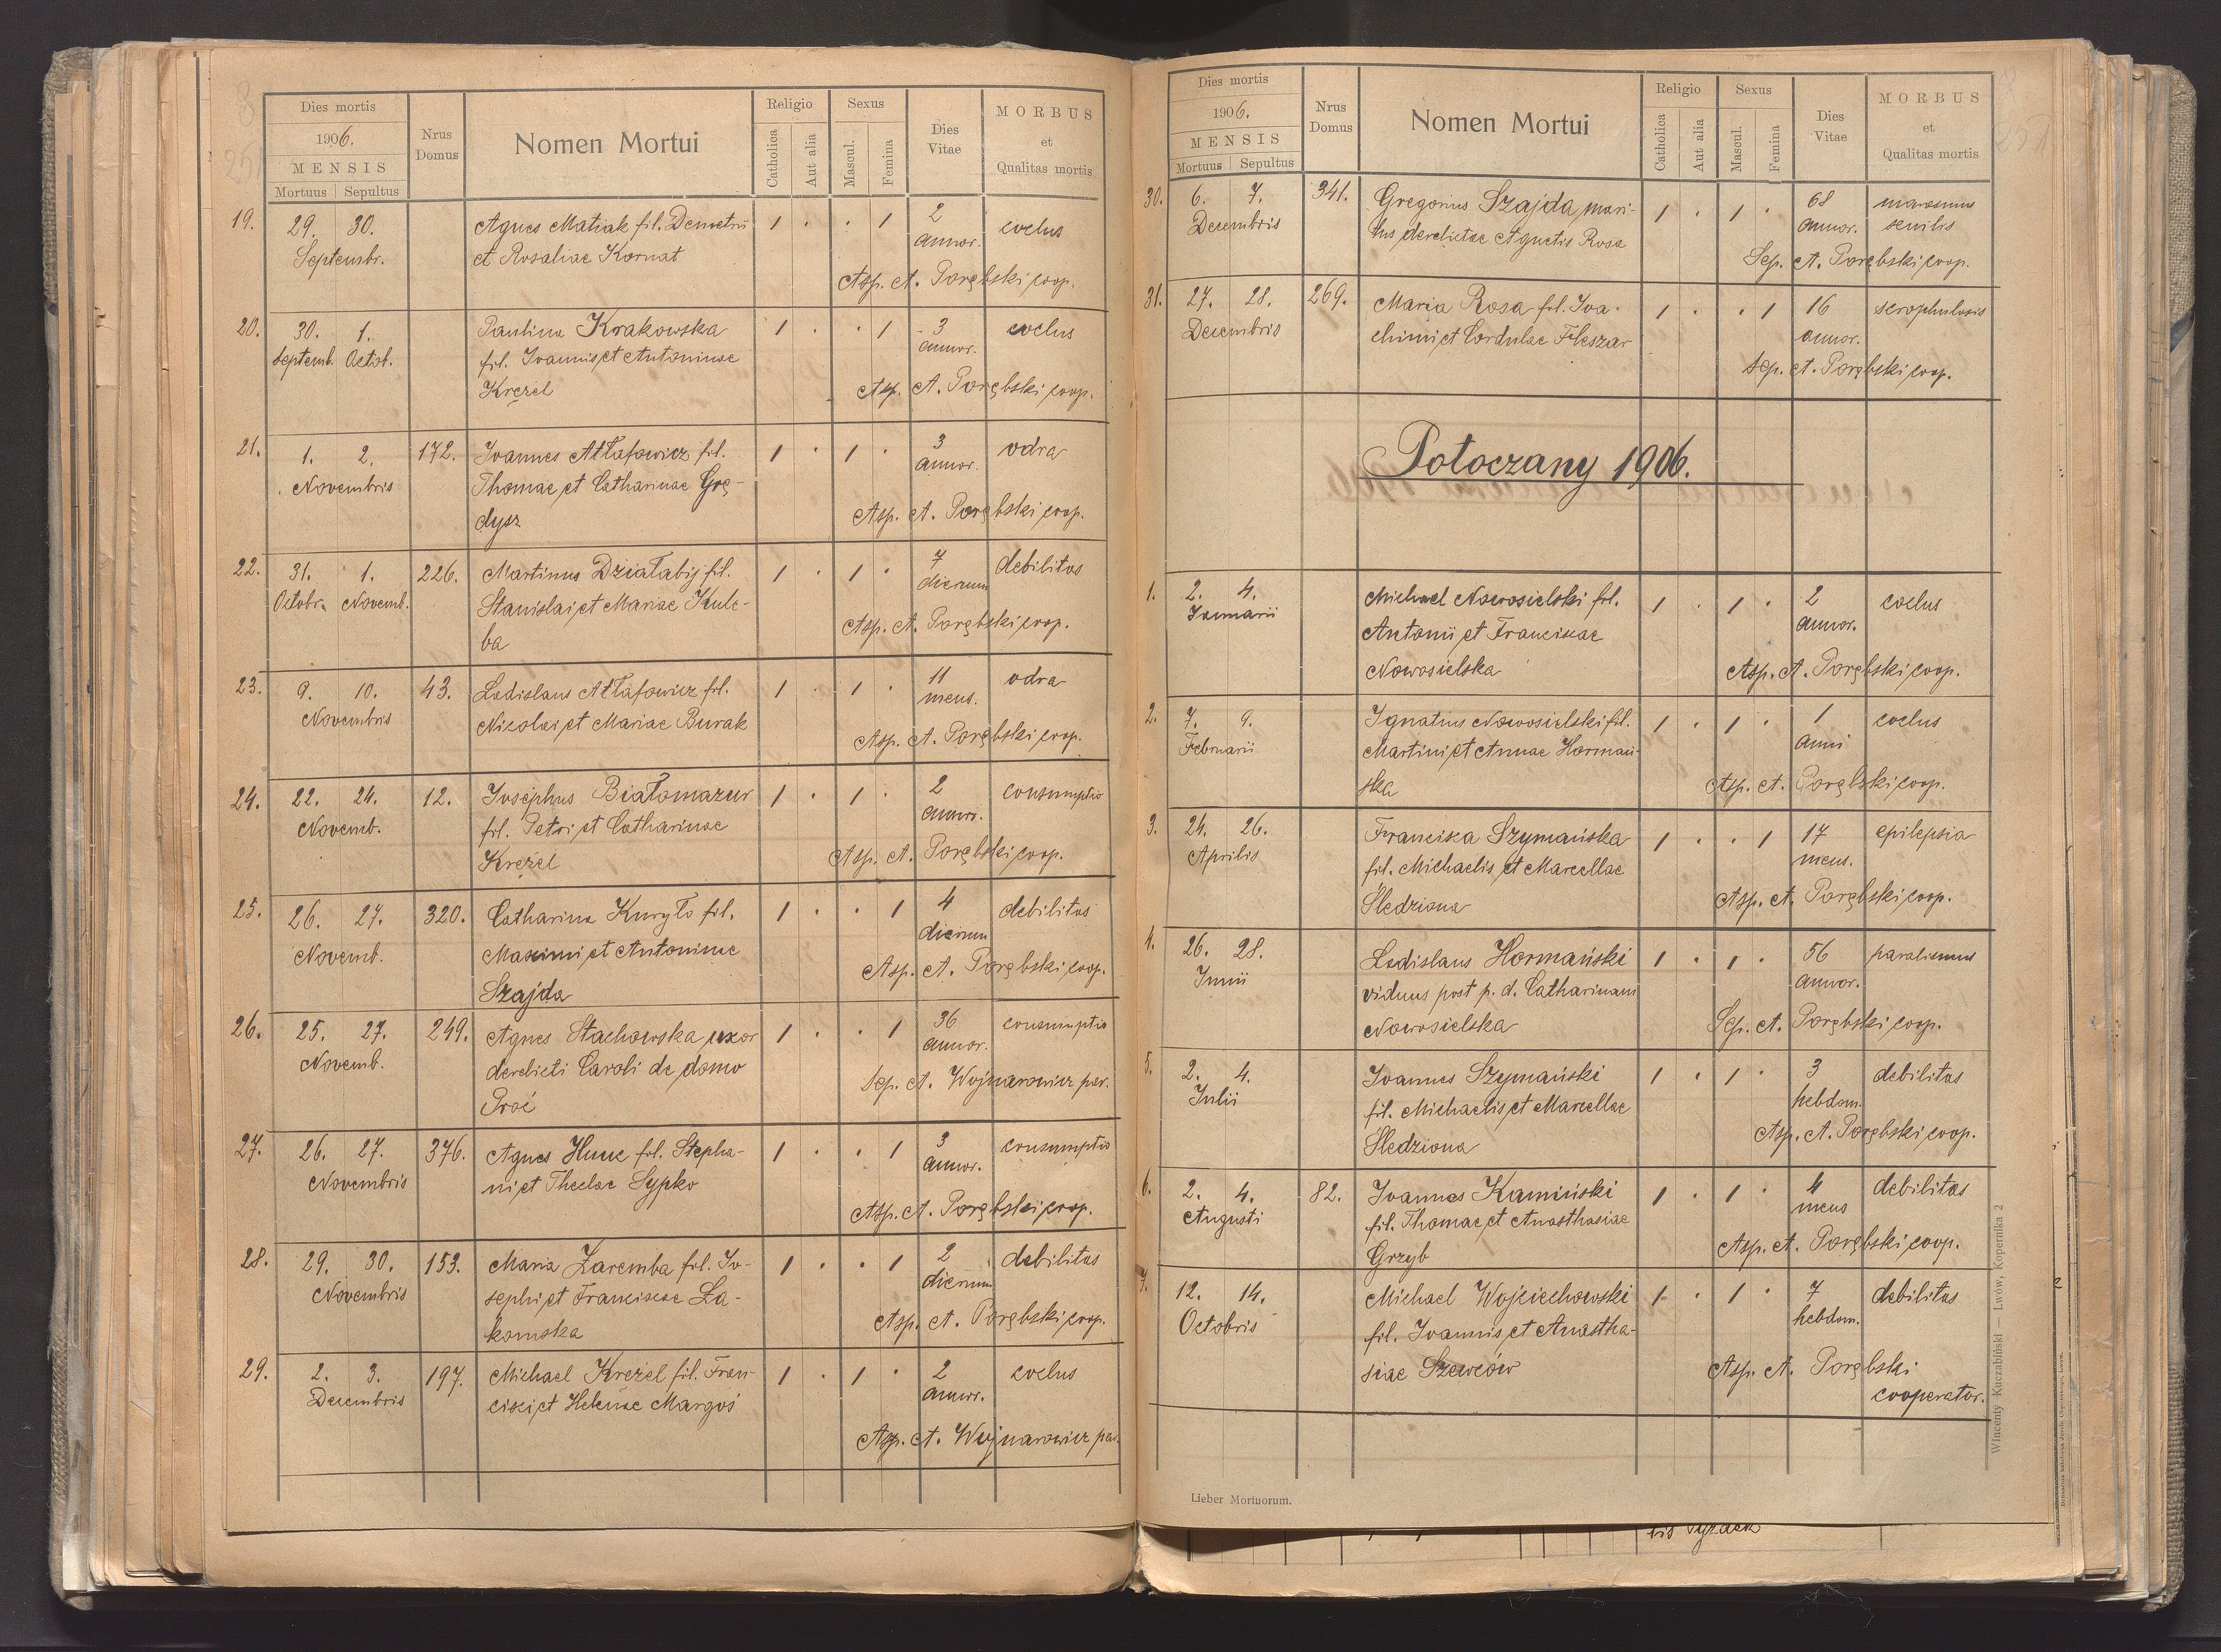 Dies mortis
1906.
MENSIS
Mortuus Sepultus
Nrus Domus
Nomen Mortui
Religio
Catholica
Aut alia
Sexus
Mascul.
Femina
Dies Vitae
MORBUS
et
Qualitas mortis
19. 29. 30. Agnes Matiak fil. Demetrii 1 . . 1 2 coclus
Septembr. et Rosaliae Kornat annor.
Asp. A. Porębski coop.
20. 30. 1. Paulina Krakowska 1 . . 1 3 coclus
Septemb. Octob. fil. Joannis et Antoninae annor.
Krężel Asp. A. Porębski coop.
21. 1. 2. 172. Joannes Attafowicz fil. 1 . 1 . 3 odra
Novembris Thomae et Catharinae Grę- annor.
dysz Asp. A. Porębski coop.
22. 31. 1. 226. Martinus Działabij fil. 1 . 1 . 7 debilitas
Octobr. Novemb. Stanislai et Mariae Kule- dierum
ba Asp. A. Porębski coop.
23. 9. 10. 43. Ladislaus Attafowicz fil. 1 . 1 . 11 odra
Novembris Nicolai et Mariae Burak mens.
Asp. A. Porębski coop.
24. 22. 24. 12. Josephus Białomazur 1 . 1 . 2 consumptio
Novemb. fil. Petri et Catharinae annor.
Krężel Asp. A. Porębski coop.
25. 26. 27. 320. Catharina Kuryło fil. 1 . . 1 4 debilitas
Novemb. Maximi et Antoninae dierum
Szajda Asp. A. Porębski coop.
26. 25. 27. 249. Agnes Stachowska uxor 1 . . 1 36 consumptio
Novemb. derelicti Caroli de domo annor.
Proć Sep. A. Wojnarowicz par.
27. 26. 27. 376. Agnes Huue fil. Stepha- 1 . . 1 3 consumptio
Novembris ni et Theclae Sypko annor.
Asp. A. Porębski coop.
28. 29. 30. 153. Maria Zaremba fil. Jo- 1 . . 1 2 debilitas
Novembris sephi et Franciscae La- dierum
komska Asp. A. Porębski coop.
29. 2. 3. 197. Michael Krężel fil. Fran- 1 . 1 . 2 coclus
Decembris cisci et Helenae Margoś annor.
Asp. A. Wojnarowicz par.
Dies mortis
1906.
MENSIS
Mortuus Sepultus
Nrus Domus
Nomen Mortui
Religio
Catholica
Aut alia
Sexus
Mascul.
Femina
Dies Vitae
MORBUS
et
Qualitas mortis
30. 6. 7. 341. Gregorius Szajda, mari- 1 . 1 . 68 marasmus
Decembris tus derelictae Agnetis Rosa annor. senilis
Sep. A. Porębski coop.
31. 27. 28. 269. Maria Rosa fil. Joa- 1 . . 1 16 scrophulosis
Decembris chimi et Cordulae Fleszar annor.
Sep. A. Porębski coop.
Potoczany 1906.
1. 2. 4. Michael Nowosielski fil. 1 . 1 . 2 coclus
Januarii Antonii et Franciscae annor.
Nowosielska Asp. A. Porębski coop.
2. 7. 9. Ignatius Nowosielski fil. 1 . 1 . 1 coclus
Februarii Martini et Annae Hormań- anni
ska Asp. A. Porębski coop.
3. 24. 26. Francisca Szymańska 1 . . 1 17 epilepsia
Aprilis fil. Michaelis et Marcellae mens.
Śledziona Asp. A. Porębski coop.
4. 26. 28. Ladislaus Hormański 1 . 1 . 56 paralismus
Junii viduus post p. d. Catharinam annor.
Nowosielska Sep. A. Porębski coop.
5. 2. 4. Joannes Szymański 1 . 1 . 3 debilitas
Julii fil. Michaelis et Marcellae hebdom.
Śledziona Asp. A. Porębski coop.
6. 2. 4. 82. Joannes Kamiński 1 . 1 . 4 debilitas
Augusti fil. Thomae et Anasthasiae mens
Grzyb Asp. A. Porębski coop.
7. 12. 14. Michael Wojciechowski 1 . 1 . 7 debilitas
Octobris fil. Joannis et Anastha- hebdom.
siae Szewców Asp. A. Porębski
cooperator.
Lieber Mortuorum.
Wincenty Kuczabiński — Lwów, Kopernika 2